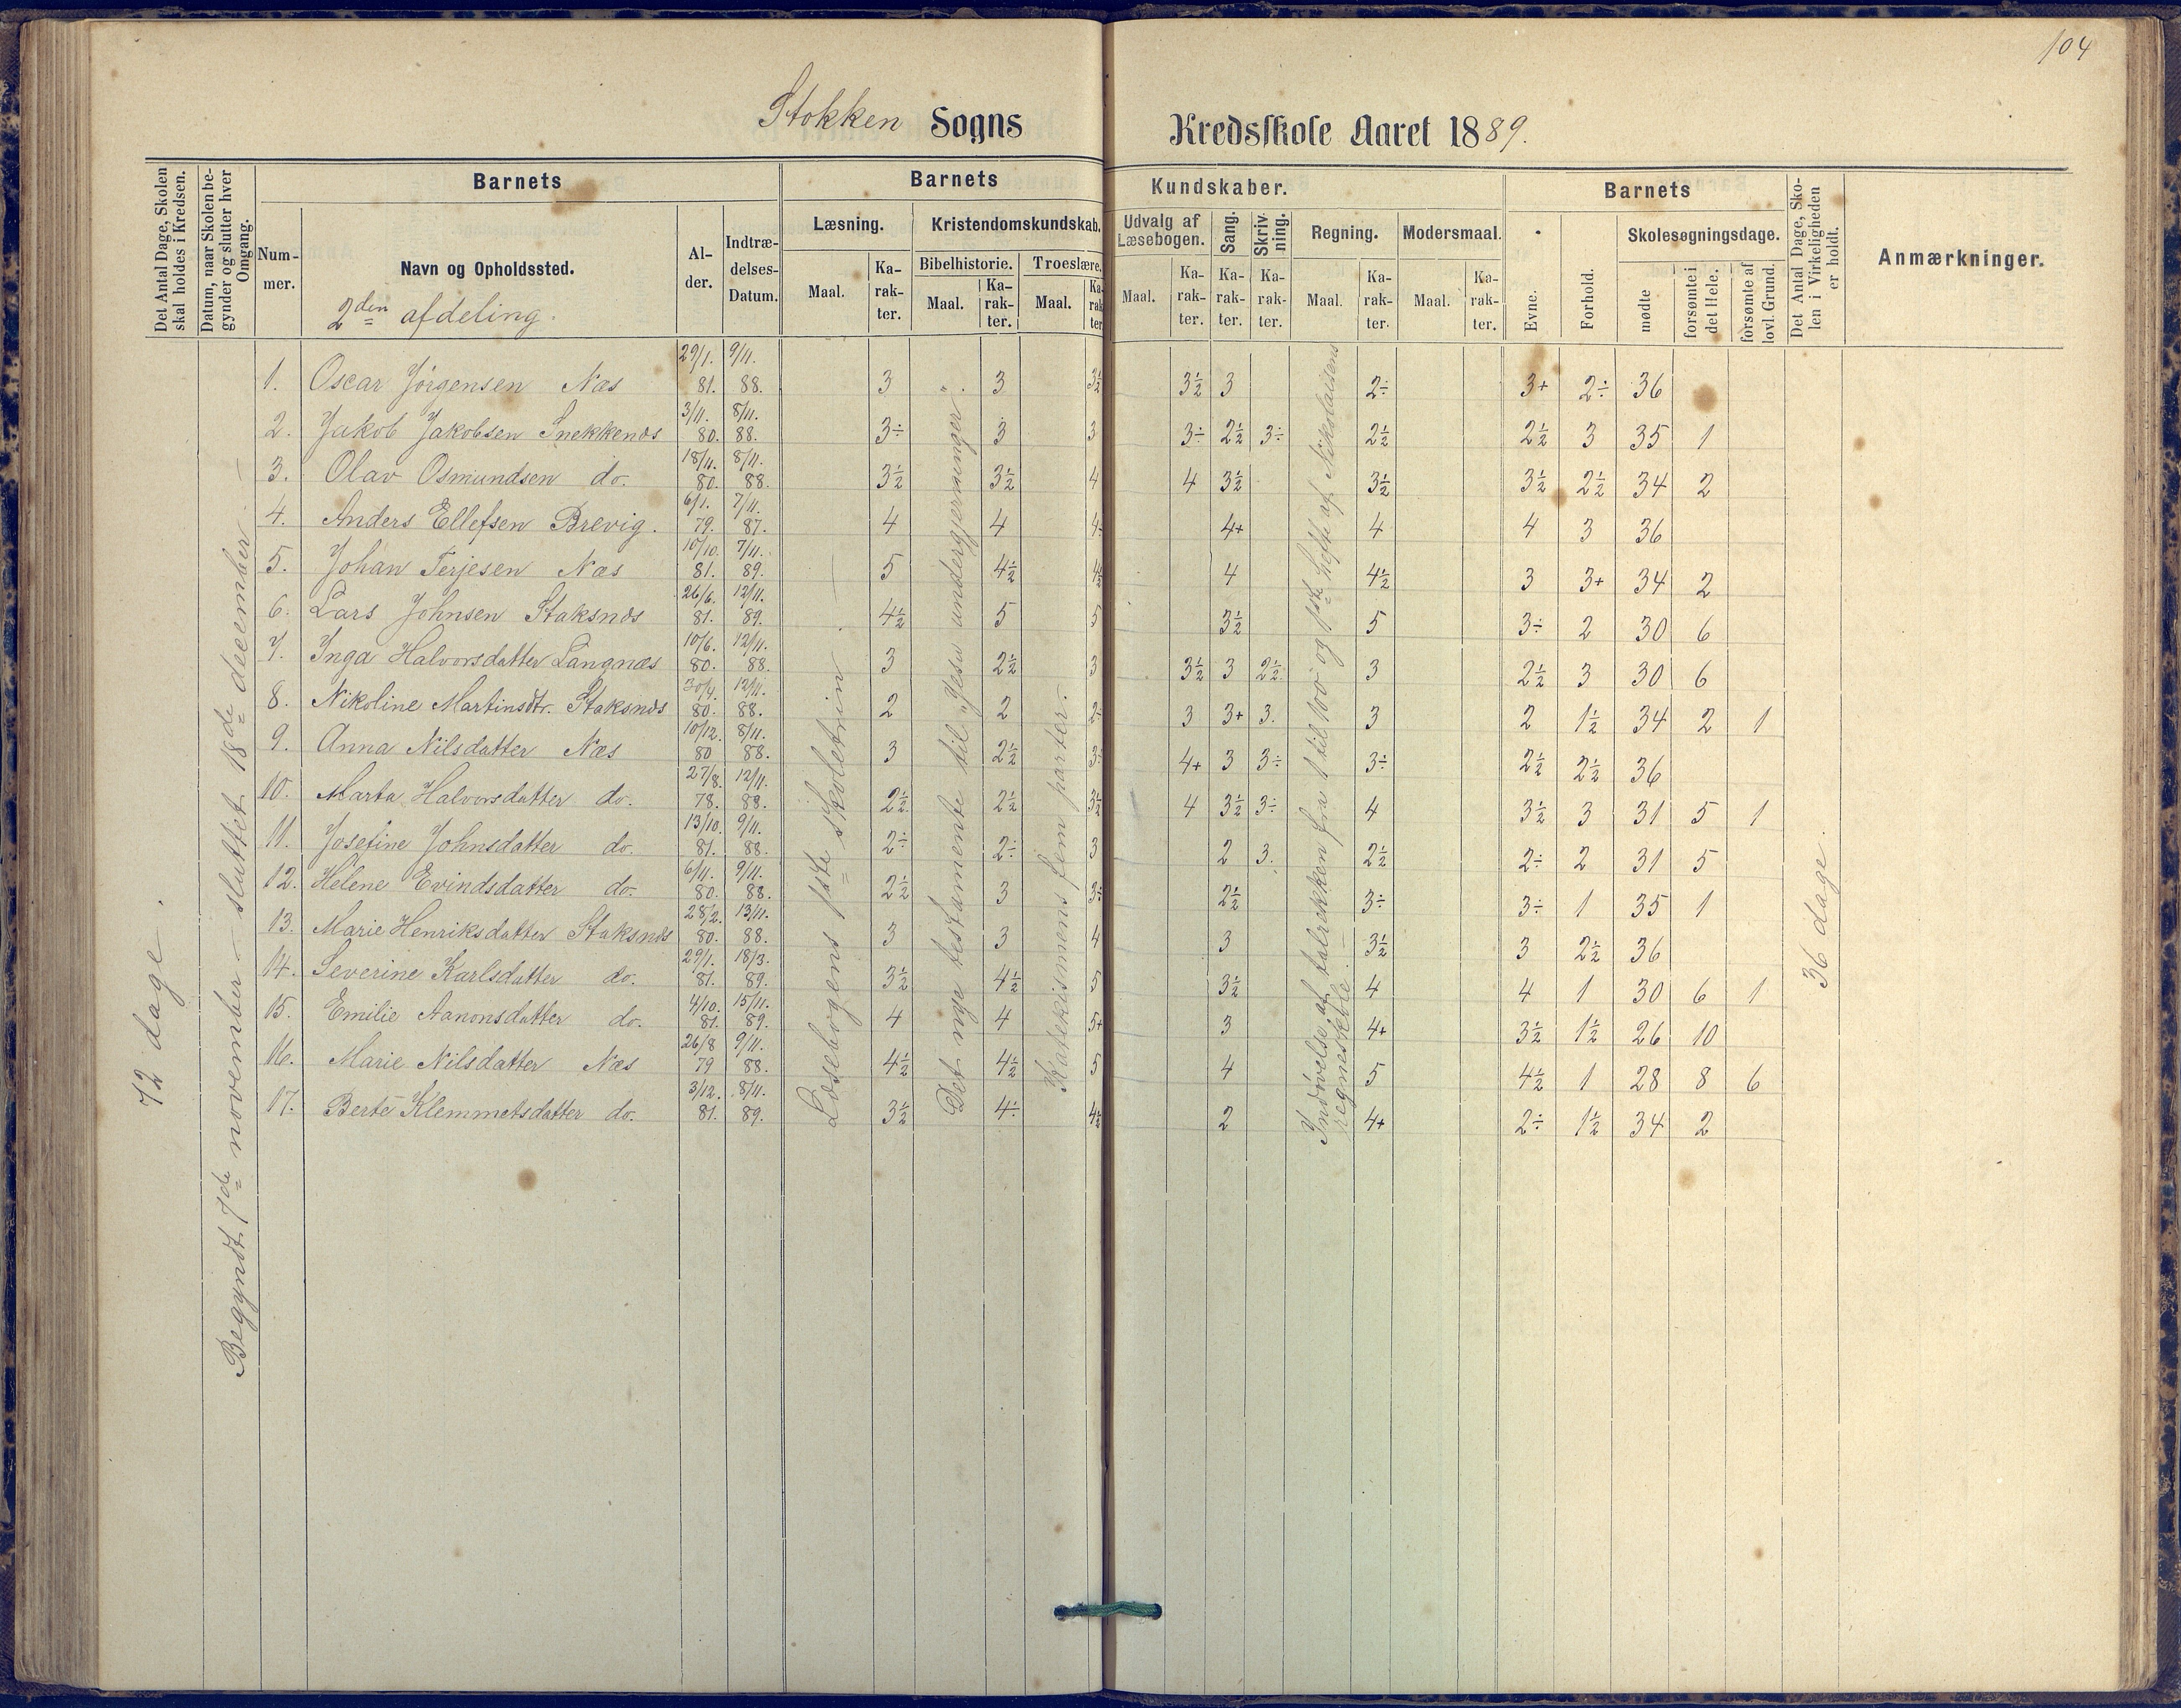 104
Stokken Sogns Kredsskole Aaret 1889.
Det Antal Dage, Skolen skal holdes i Kredsen.
Datum, naar Skolen begynder og slutter hver Omgang.
Barnets
Nummer.
Navn og Opholdssted.
2den afdeling.
Alder.
Indtrædelses-Datum.
Barnets Kundskaber.
Læsning.
Maal.
Karakter.
Kristendomskundskab.
Bibelhistorie.
Maal.
Karakter.
Troeslære.
Maal.
Karakter
Udvalg af Læsebogen.
Maal.
Karakter.
Sang.
Karakter.
Skrivning.
Karakter.
Regning.
Maal.
Karakter.
Modersmaal.
Maal.
Karakter.
Barnets
Evne.
Forhold.
Skolesøgningsdage.
mødte
forsømte i det Hele.
forsømte af lovl. Grund.
Det Antal Dage, Skolen i Virkeligheden er holdt.
Anmærkninger.
72 dage.
Begyndt 7de november – sluttet 18de december. –
Læsebogens 1ste skoletrin –
Det nye testamente til „Jesu undergjerninger“.
Katekismens fem parter. –
Indøvelse af talrekken fra 1 til 100 og 1ste hefte af Nikolaisens regneskole.
36 dage.
1. Oscar Jørgensen Næs 29/1. 81. 9/11. 88. 3 3 3½ 3½ 3 2÷ 3+ 2÷ 36
2. Jakob Jakobsen Snekkenes 3/11. 80. 8/11. 88. 3÷ 3 3 3÷ 2½ 3÷ 2½ 2½ 3 35 1
3. Olav Osmundsen do. 18/11. 80. 8/11. 88. 3½ 3½ 4 4 3½ 3½ 3½ 2½ 34 2
4. Anders Ellefsen Brevig. 6/1. 79. 7/11. 87. 4 4 4÷ 4+ 4 4 3 36
5. Johan Terjesen Næs 10/10. 81. 7/11. 89. 5 4½ 4½ 4 4½ 3 3+ 34 2
6. Lars Johnsen Staksnes 26/6. 81. 12/11. 89. 4½ 5 5 3½ 5 3÷ 2 30 6
7. Inga Halvorsdatter Langnæs 10/6. 80. 12/11. 88. 3 2½ 3 3½ 3 2½ 3 2½ 3 30 6
8. Nikoline Martinsdtr. Staksnes 30/4. 80. 12/11. 88. 2 2 2÷ 3 3+ 3. 3 2 1½ 34 2 1
9. Anna Nilsdatter Næs 10/12. 80 8/11. 88. 3 2½ 3÷ 4+ 3 3÷ 3÷ 2½ 2½ 36
10. Marta Halvorsdatter do. 27/8. 78. 12/11. 88. 2½ 2½ 3½ 4 3½ 3÷ 4 3½ 3 31 5 1
11. Josefine Johnsdatter do. 13/10. 81. 9/11. 88. 2÷ 2÷ 3 2 3. 2½ 2÷ 2 31 5
12. Helene Evindsdatter do. 6/11. 80. 9/11. 88. 2½ 3 3÷ 2½ 3÷ 3÷ 1 35 1
13. Marie Henriksdatter Staksnes 28/2. 80. 13/11. 88. 3 3 4 3 3½ 3 2½ 36
14. Severine Karlsdatter do. 29/1. 81. 18/3. 89. 3½ 4½ 5 3½ 4 4 1 30 6 1
15. Emilie Aanonsdatter do. 4/10. 81. 15/11. 89. 4 4 5+ 3 4+ 3½ 1½ 26 10
16. Marie Nilsdatter Næs 26/8 79 9/11. 88. 4½ 4½ 5 4 5 4½ 1 28 8 6
17. Berte Klemmetsdatter do. 3/12. 81. 8/11. 89. 3½ 4÷ 4½ 2 4+ 2÷ 1½ 34 2